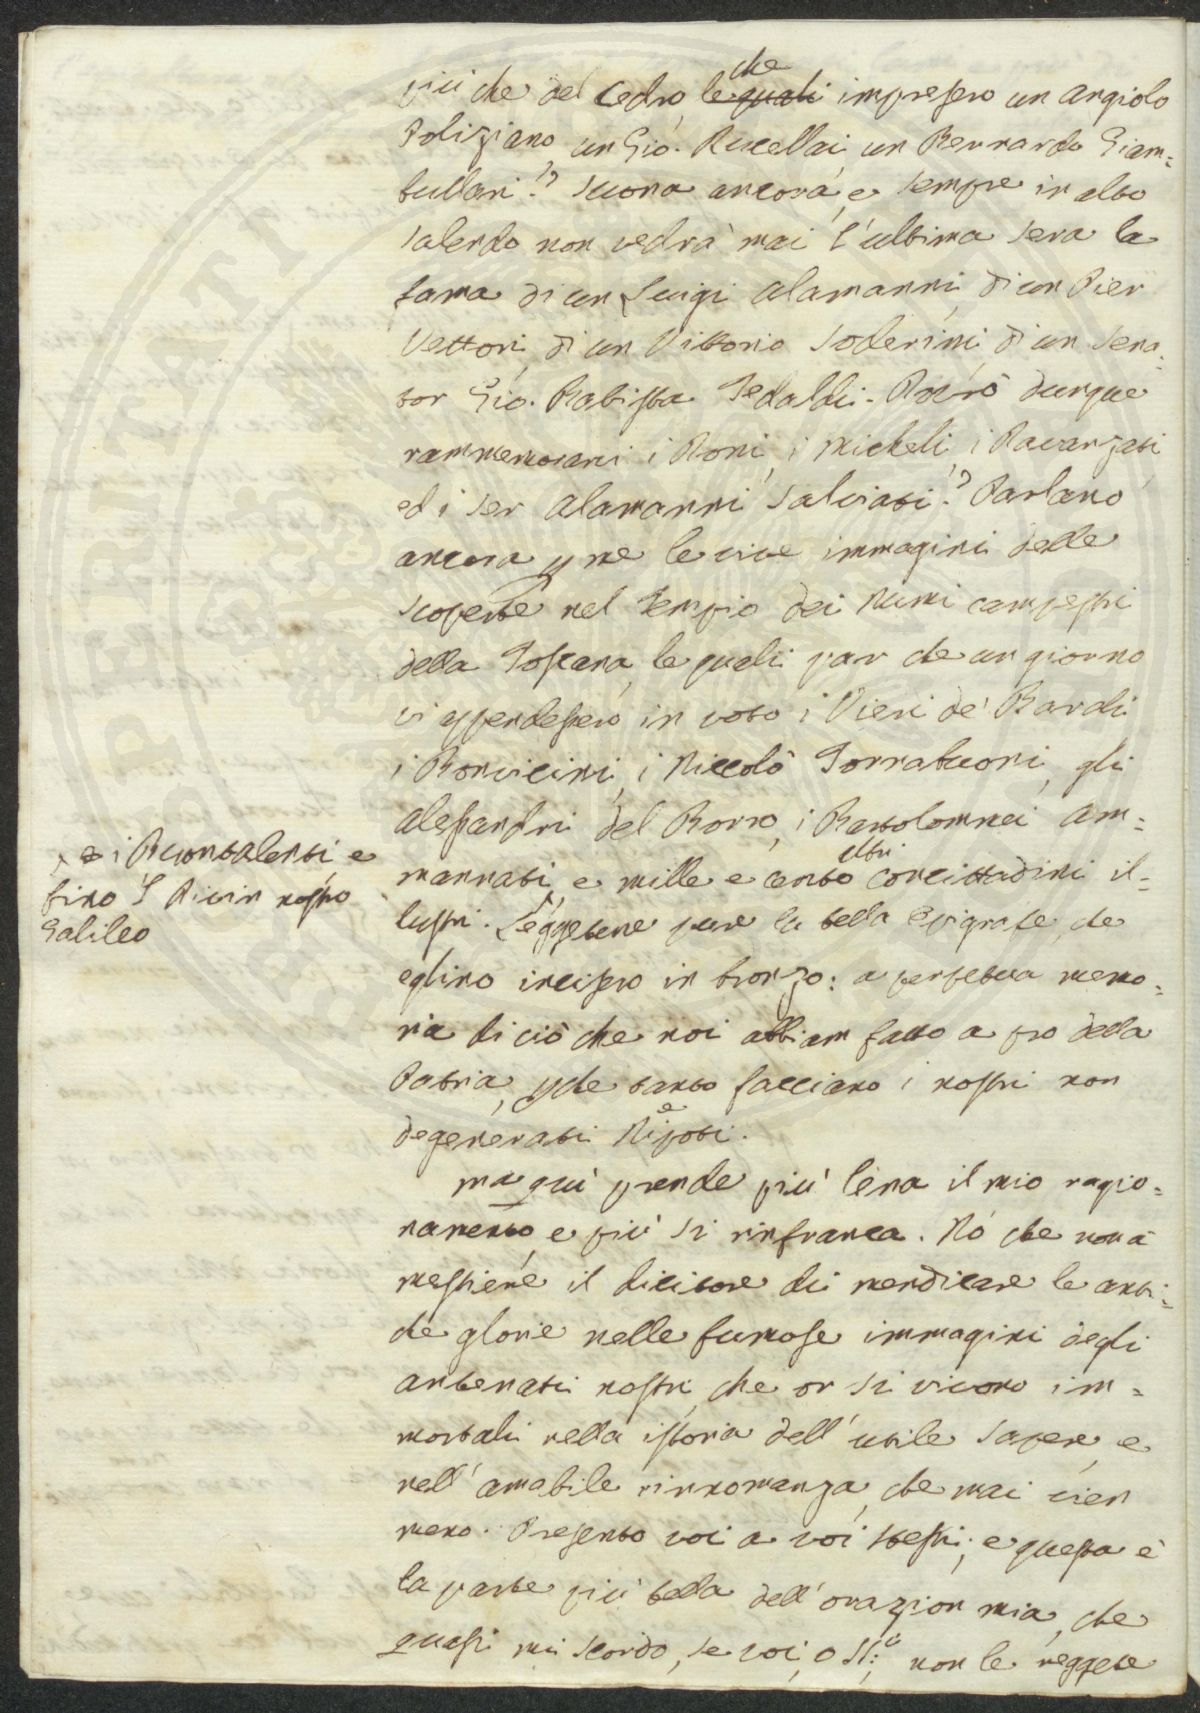 più che del Cedro, le quali che impresero un Angiolo
Poliziano, un Gio. Rucellai, un Bernardo Giam=
bullari? Suona ancora, e sempre in alto
salendo non vedrà mai l'ultima sera la
fama di un Luigi Alamanni, di un Pier
Vettori, di un Vittorio Soderini, di un Sena=
tor Gio. Batista Tedaldi. Potrò dunque
rammemorarvi i Boni, i Micheli, i Davanzati
ed i Ser Alamanni Salviati? Parlano
ancora p me le vive immagini delle
scoperte nel Tempio dei Numi campestri
della Toscana, le quali par che un giorno
vi appendessero in voto i Vieri de' Bardi
i Bonvicini, i Niccolò Torrabuoni, gli
Alessandri del Borro, i Bartolommei Am=
mannati, e mille e cento altri concittadini il=
lustri. Leggetene pure la bella Epigrafe, che
eglino incisero in bronzo: a perpetua memo=
ria di ciò che noi abbiam fatto a pro della
Patria, pche tanto facciano i nostri non
degenerati Nepoti.
Ma quì prende più lena il mio ragio=
namento, e più si rinfranca. Nò che non à
mestiere il dicitore di mendicare le anti=
che glorie nelle fumose immagini degli
antenati nostri, che or si vivono im=
mortali nella istoria dell'utile sapere, e
nell'amabile rinnomanza, che mai vien
meno. Presento voi a voi stessi; e questa è
la parte più bella dell'orazion mia, che
quasi mi scordo, se voi, o SS:ri, non la reggete
i Buontalenti e
fino l Divin nostro
Galileo